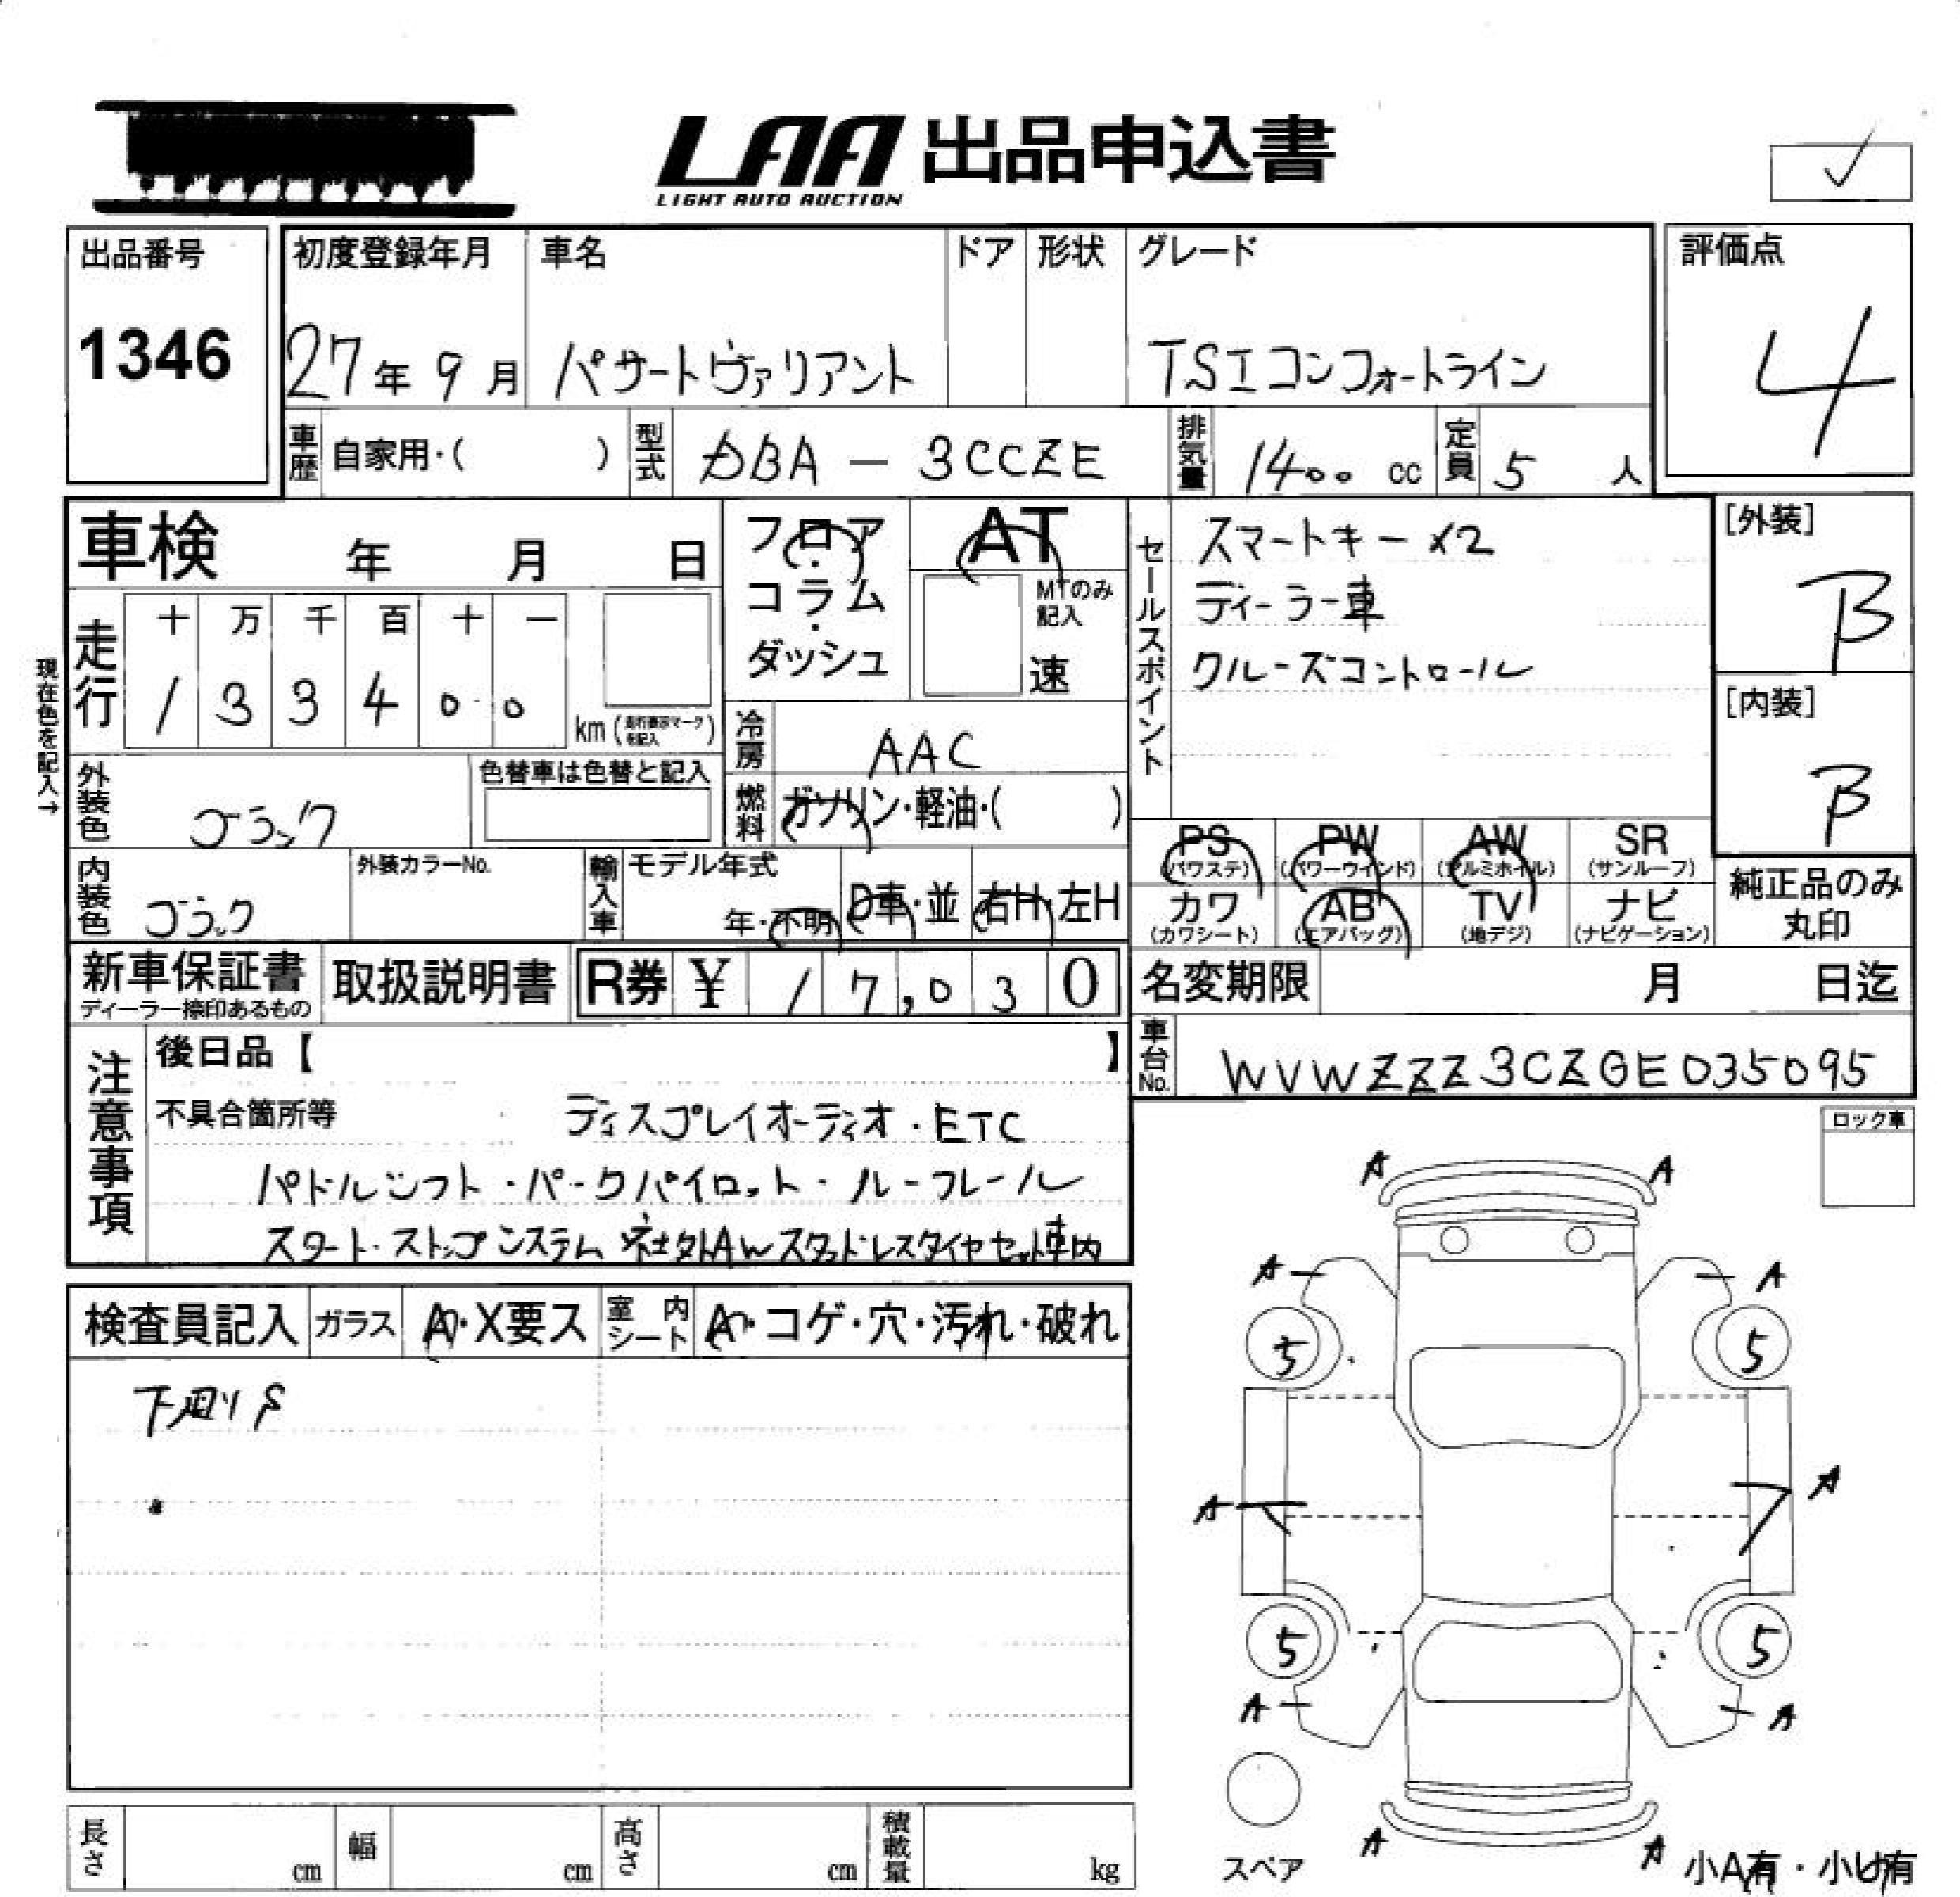 LAA 出品申込書
LIGHT AUTO AUCTION
出品番号
1346
初度登録年月
27年9月
車名
パサートヴァリアント
ドア
形状
グレード
TSIコンフォートライン
評価点
4
車歴
自家用・( )
型式
DBA - 3CCZE
排気量
1400 cc
定員
5 人
車検 年 月 日
フロア・コラム・ダッシュ
AT
MTのみ記入
速
セールスポイント
スマートキー×2
ディーラー車
クルーズコントロール
[外装]
B
[内装]
B
現在色を記入→
走行
十 万 千 百 十 一
1 3 3 4 0 0
km (走行表示マークを記入)
冷房
AAC
外装色
ブラック
色替車は色替と記入
燃料
ガソリン・軽油・( )
PS
(パワステ)
PW
(パワーウインド)
AW
(アルミホイル)
SR
(サンルーフ)
カワ
(カワシート)
AB
(エアバッグ)
TV
(地デジ)
ナビ
(ナビゲーション)
純正品のみ
丸印
内装色
ブラック
外装カラーNo.
輸入車
モデル年式
年・不明
D車・並
右H・左H
新車保証書
ディーラー捺印あるもの
取扱説明書
R券 ¥ 17,030
名変期限 月 日迄
車台No.
WVWZZZ3CZGE035095
注意事項
後日品【 】
不具合箇所等
ディスプレイオーディオ・ETC
パドルシフト・パークパイロット・ルーフレール
スタート・ストップシステム 社外AWスタッドレスタイヤセット車内
ロック車
検査員記入
ガラス
A・X要ス
室内シート
A・コゲ・穴・汚れ・破れ
下周りS
A A
A A
5 5
A A
5 5
A A
A A
スペア
小A有・小U有
長さ cm
幅 cm
高さ cm
積載量 kg